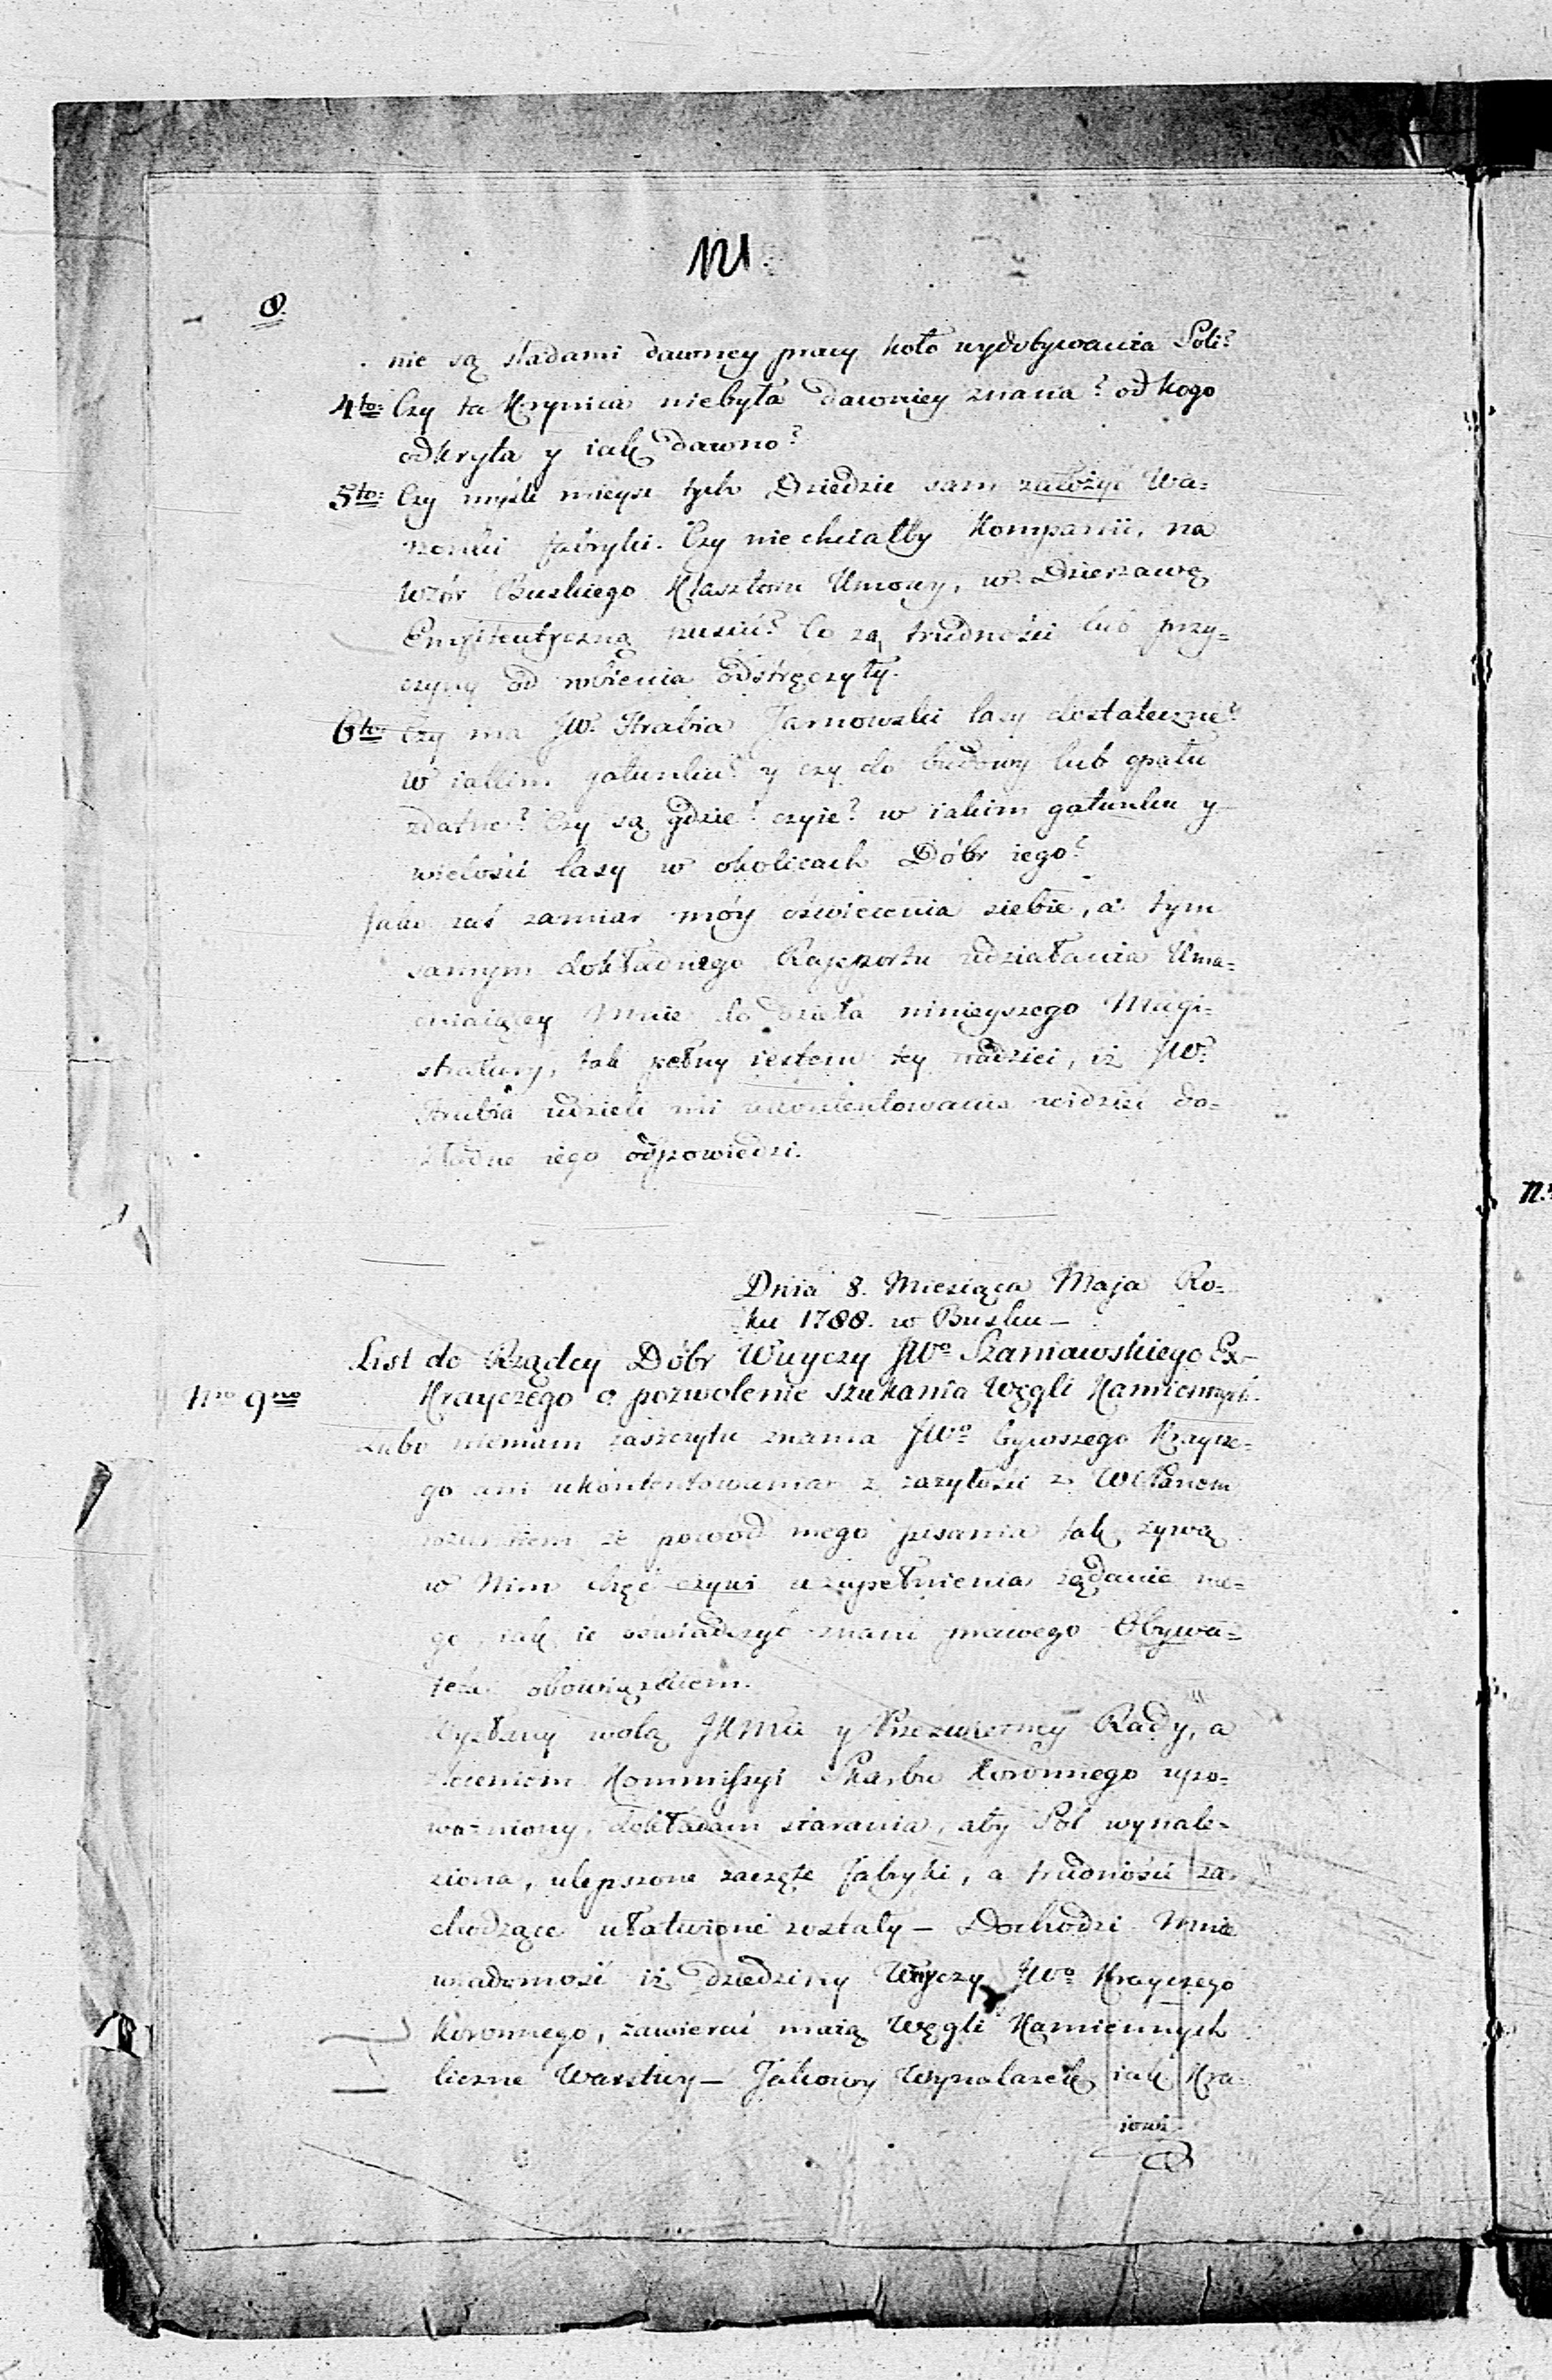 121.
8.
nie są sladami dawney pracy koło wydobywania Soli?
4to: Czy ta Krynica niebyła dawniey znana? od kogo
odkryta y iak dawno?
5to: Czy myśli mieysc tych Dziedzic sam założyć Wa=
rzonki fabryki. Czy niechciałby Kompanii, na
wzór Buskiego Klasztoru Umowy, w Dzierzawę
Emfiteutyczną puścić? Co za trudności lub przy=
czyny od robienia odstręczyły.
6to: Czy ma JW. Hrabia Jarnowski lasy dostateczne?
w iakim gatunku? y czy do budowy lub opału
zdatne? Czy są gdzie? czyie? w iakim gatunku y
wielości lasy w okolicach Dóbr iego?
Jako zaś zamiar móy oświecenia siebie, a tym
samym dokładnego Rapportu udziałania Uma=
cniaiącey Mnie do dzieła ninieyszego Magi=
stratury, tak pełny iestem tey nadziei, iż JW.
Hrabia udzieli mi ukontentowania widzieć do=
kładne iego odpowiedzi.
Dnia 8. Miesiąca Maja Ro=
ku 1788. w Busku —
List do Rządcy Dóbr Wuyczy JWo Szaniawskiego Ex=
Nro 9no Krayczego o pozwolenie szukania Węgli Kamiennych.
Lubo niemam zaszczytu znania JWo bywszego Kraycze=
go ani ukontentowania z zażyłości z WMPanem
rozumiem że powód mego pisania tak żywą
w Nim chęć czyni uzupełnienia żądania me=
go, iak ie oświadczyć mam prawego Obywa=
tela obowiązkiem.
Wysłany wolą JKMci y Prześwietney Rady, a
zleceniem Kommissyi Skarbu Koronnego upo=
ważniony, dokładam starania, aby Sól wynale=
ziona, ulepszone zaczęte fabryki, a trudności za=
chodzące ułatwione zostały — Dochodzi Mnie
wiadomość iż dziedziny Wuyczy JWo Krayczego
Koronnego, zawierać maią Węgli Kamiennych
liczne Warstwy — Jakowy Wynalazek iak Kra=
iowi